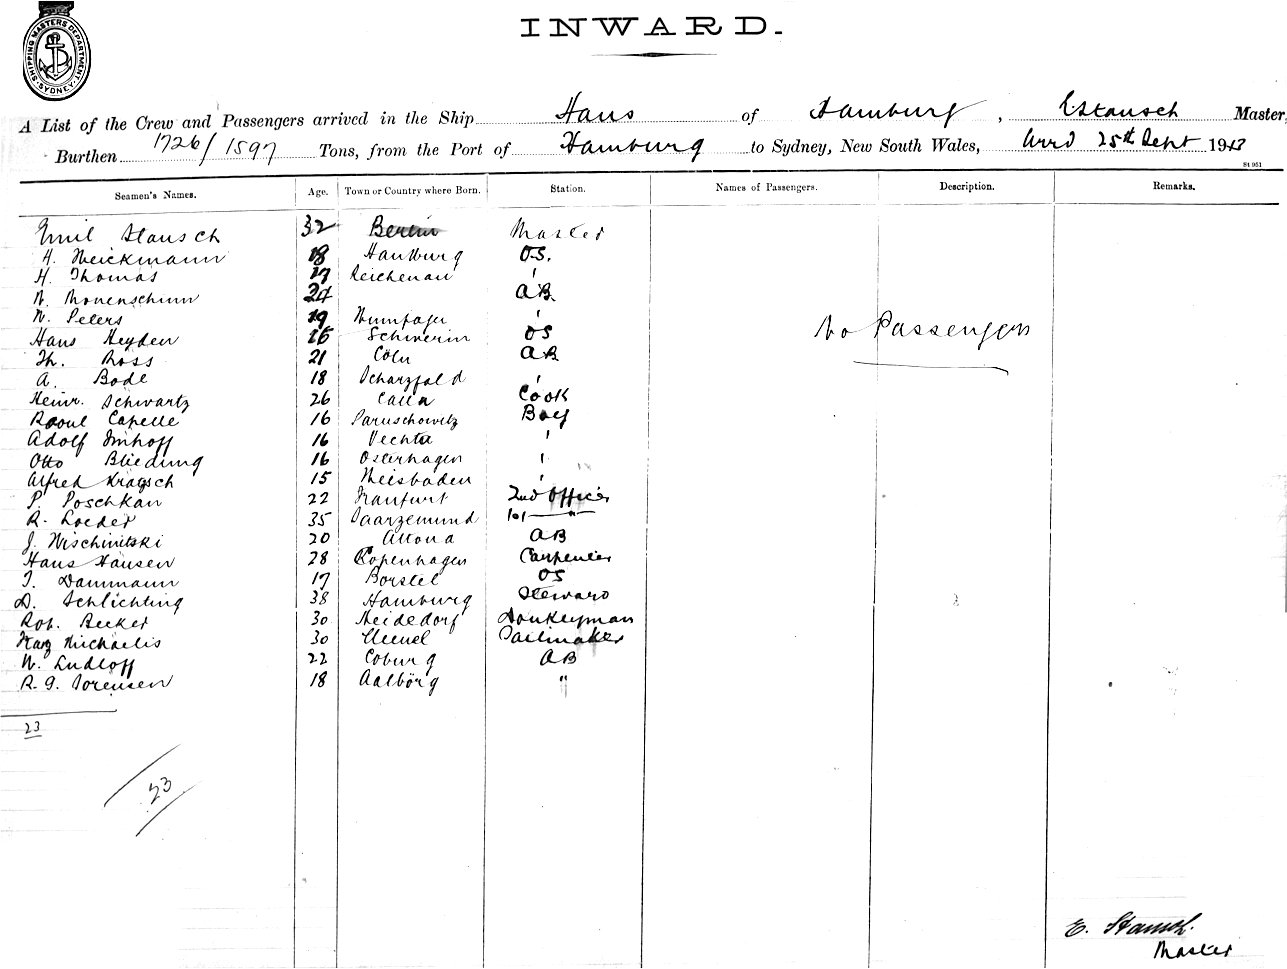 SHIPPING MASTERS DEPARTMENT
SYDNEY
INWARD.
A List of the Crew and Passengers arrived in the Ship Hans of Hamburg, E Stausch Master,
Burthen 1726/1597 Tons, from the Port of Hamburg to Sydney, New South Wales, Arrd 25th Sept 1913
St 951
Seamen's Names. Age. Town or Country where Born. Station. Names of Passengers. Description. Remarks.
Emil Stausch 32 Berlin Master
H. Weickmann 18 Hamburg OS.
H. Thomas 17 Reichenau "
24 AB.
W. Peters 19 "
Hans Heyden 16 Schwerin OS
No Passengers
Th. Ross 21 Cöln AB
A. Bode 18 Scharzfeld "
Heinr. Schwartz 26 Calla Cook
Raoul Capelle 16 Paruschowitz Boy
Adolf Imhoff 16 Vechta "
Otto Bliedung 16 Osterhagen "
Alfred Kratzsch 15 Weisbaden "
P. Poschkan 22 Franfurt 2nd Officer
R. Loeder 35 Saarzemund 1st "
J. Wischnitski 20 Altona AB
Hans Hansen 28 Copenhagen Carpenter
T. Dammann 17 Borstel OS
D. Schlichting 38 Hamburg Steward
Rob. Becker 30 Heidedorf Donkeyman
Franz Michaelis 30 Memel Sailmaker
W. Ludloff 22 Coburg AB
R. G. Sorensen 18 Aalbörg "
23
23
E. Stausch.
Master